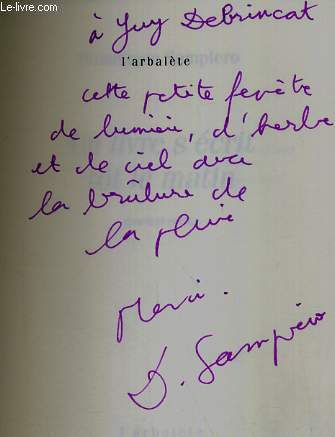 Le-livre.com
à Guy Debrincat
l'arbalète
cette petite fenêtre
de lumière, d'herbe
et de ciel avec
la brûlure de
la pluie
Merci.
D. Sampiero